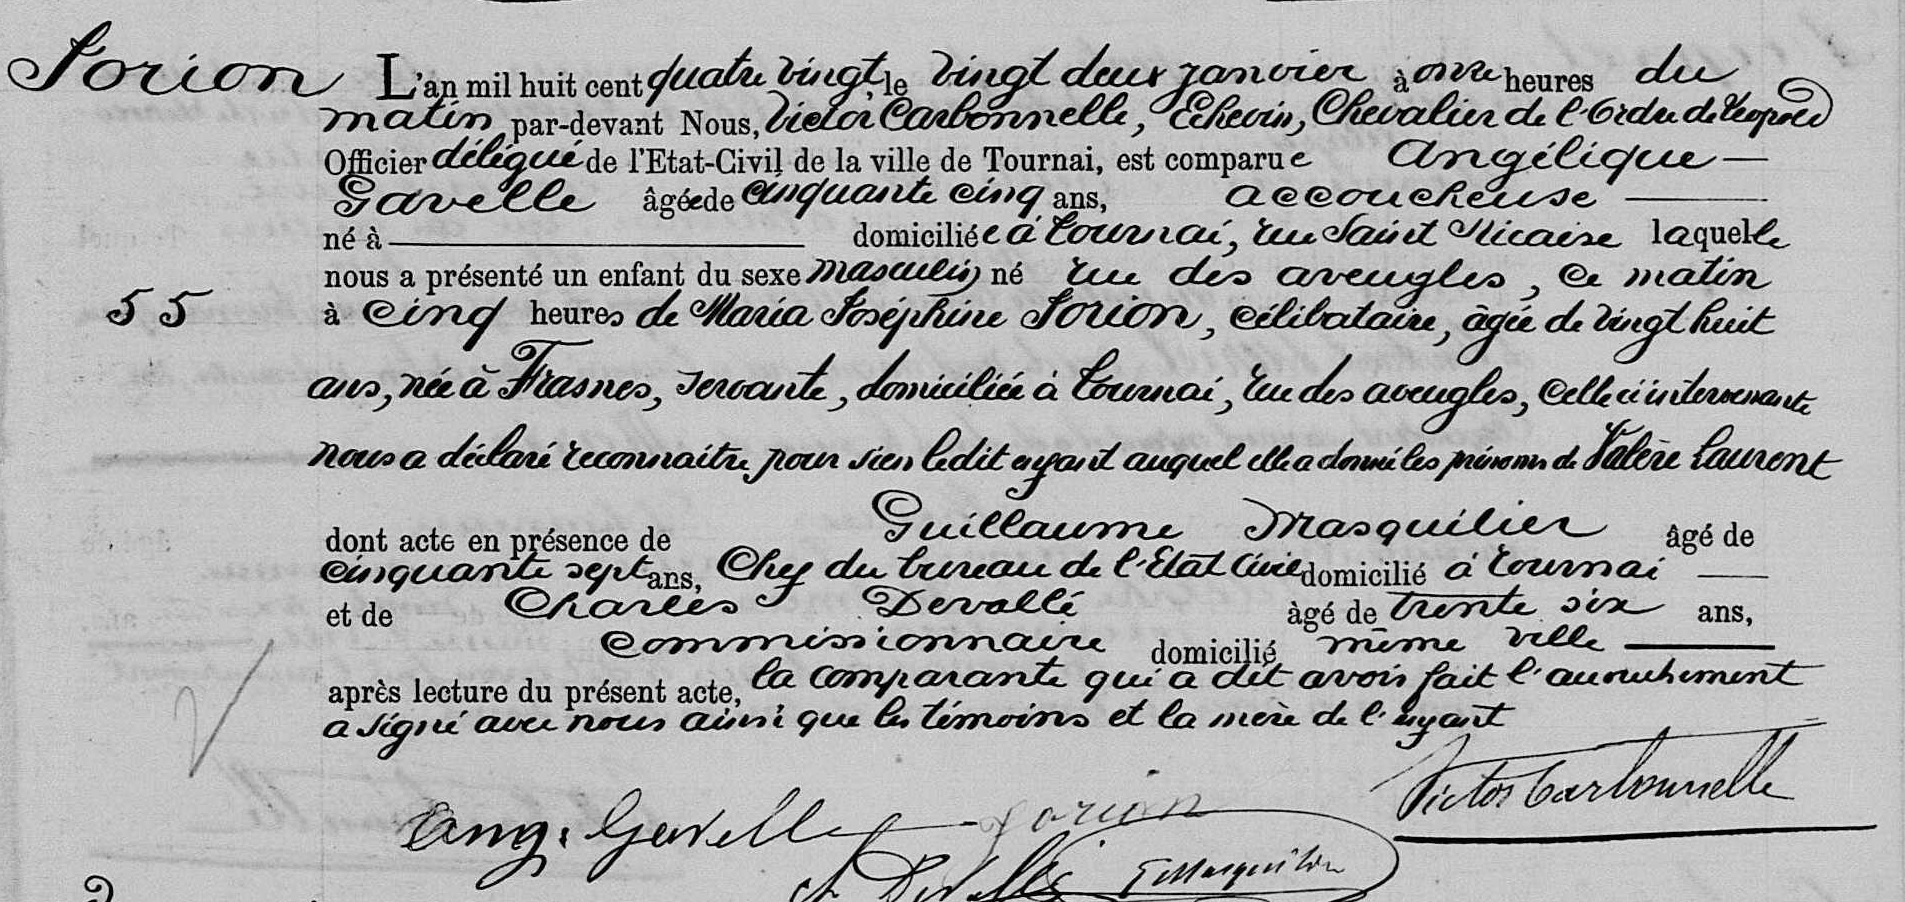 Sorion
L'an mil huit cent quatre vingt, le vingt deux janvier à onze heures du
matin par-devant Nous, Victor Carbonnelle, Echevin, Chevalier de l'Ordre de Léopold
Officier délégué de l'Etat-Civil de la ville de Tournai, est comparue Angélique
Gavelle âgée de cinquante cinq ans, accoucheuse
né à domiciliée à Tournai, rue Saint Nicaise laquelle
nous a présenté un enfant du sexe masculin né rue des aveugles, ce matin
55
à cinq heures de Maria Joséphine Sorion, célibataire, âgée de vingt huit
ans, née à Frasnes, servante, domiciliée à Tournai, rue des aveugles, celle ci intervenante
nous a déclaré reconnaitre pour sien ledit enfant auquel elle a donné les prénoms de Valère Laurent
dont acte en présence de Guillaume Masquilier âgé de
cinquante sept ans, Chef du bureau de l'Etat Civil domicilié à Tournai
et de Charles Devallé âgé de trente six ans,
commissionnaire domicilié même ville
après lecture du présent acte, la comparante qui a dit avoir fait l'accouchement
a signé avec nous ainsi que les témoins et la mère de l'enfant
Victor Carbonnelle
Ang. Gavelle Sorion
Ch Devallé G Masquilier